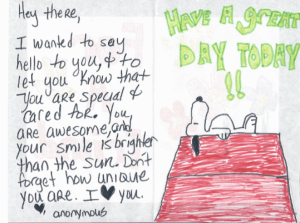 Hey there,
I wanted to say
hello to you, & to
let you know that
You are special &
cared for. You
are awesome, and
your smile is brighter
than the sun. Don't
forget how unique
you are. I ♥ you.
anonymous
HAVE A GREAT
DAY TODAY
!!